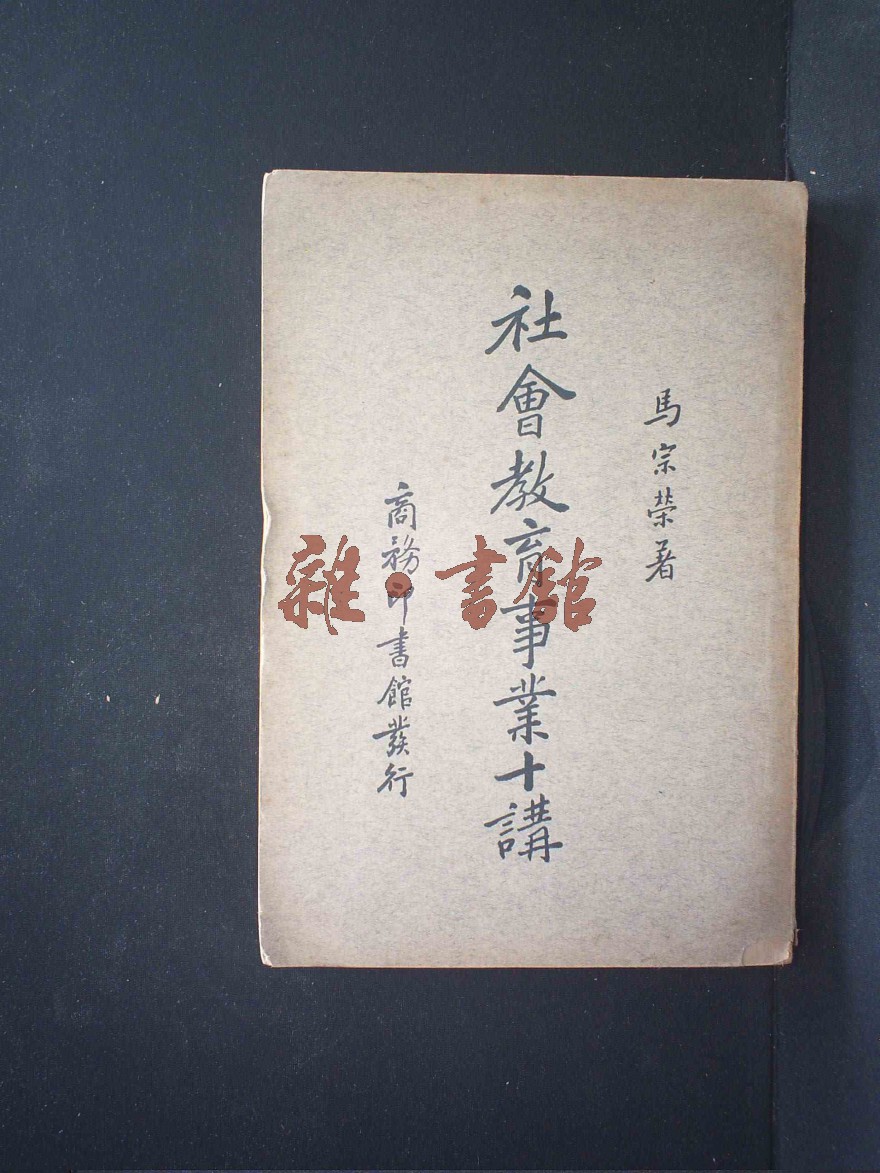 馬宗榮著
社會教育事業十講
商務印書館發行
雜·書館